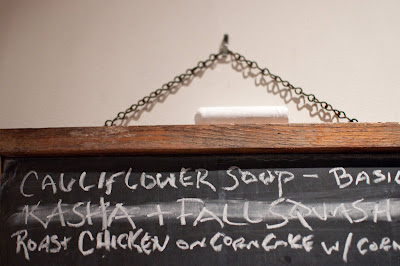 CAULIFLOWER SOUP - BASI
KASHA + FALL SQUASH
ROAST CHICKEN ON CORNCAKE W/ CORN